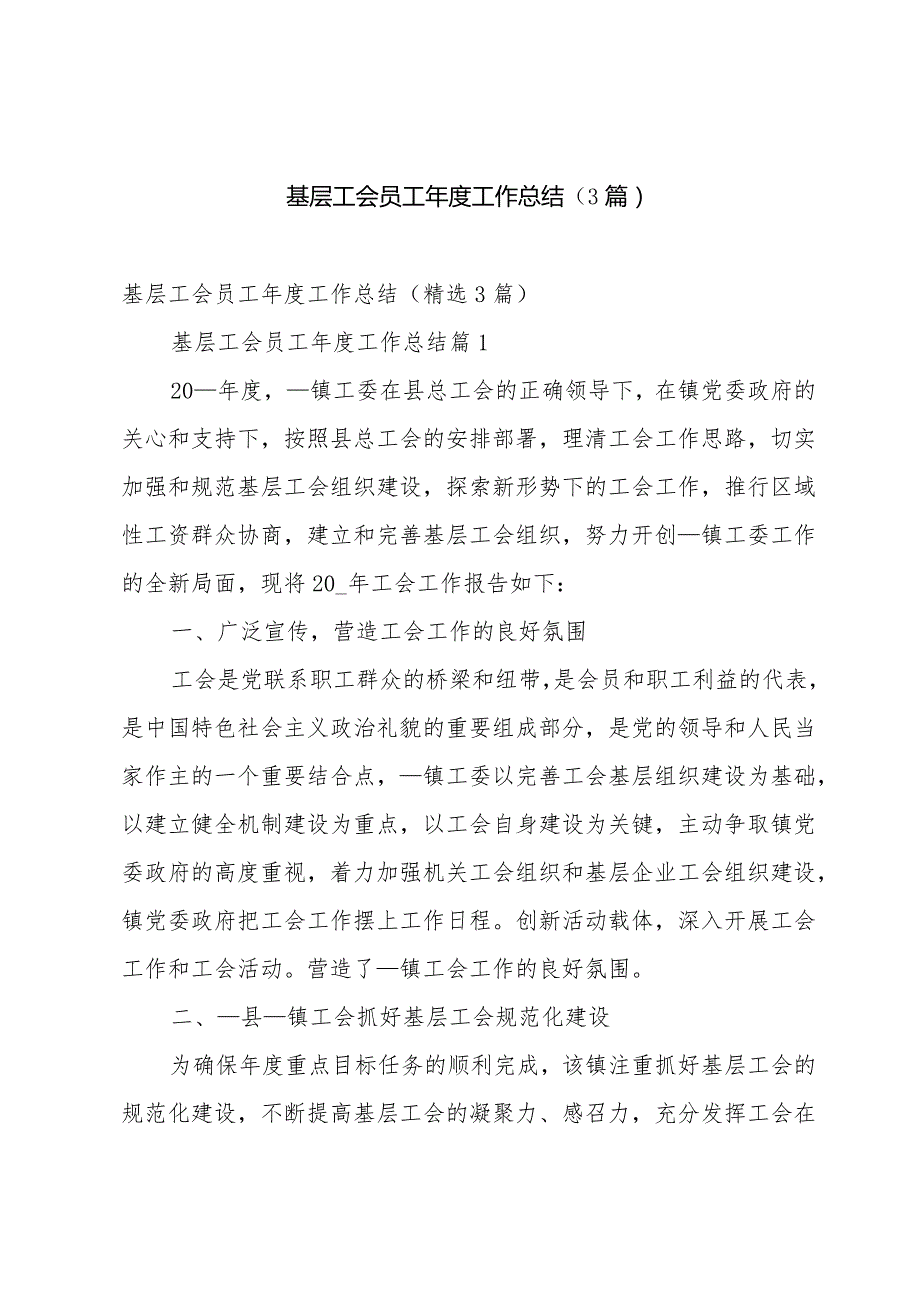 基层工会员工年度工作总结（3 篇）
基层工会员工年度工作总结（精选 3 篇）
基层工会员工年度工作总结篇 1
20—年度，—镇工委在县总工会的正确领导下，在镇党委政府的
关心和支持下，按照县总工会的安排部署，理清工会工作思路，切实
加强和规范基层工会组织建设，探索新形势下的工会工作，推行区域
性工资群众协商，建立和完善基层工会组织，努力开创—镇工委工作
的全新局面，现将 20_年工会工作报告如下：
一、广泛宣传，营造工会工作的良好氛围
工会是党联系职工群众的桥梁和纽带，是会员和职工利益的代表，
是中国特色社会主义政治礼貌的重要组成部分，是党的领导和人民当
家作主的一个重要结合点，—镇工委以完善工会基层组织建设为基础，
以建立健全机制建设为重点，以工会自身建设为关键，主动争取镇党
委政府的高度重视，着力加强机关工会组织和基层企业工会组织建设，
镇党委政府把工会工作摆上工作日程。创新活动载体，深入开展工会
工作和工会活动。营造了—镇工会工作的良好氛围。
二、—县—镇工会抓好基层工会规范化建设
为确保年度重点目标任务的顺利完成，该镇注重抓好基层工会的
规范化建设，不断提高基层工会的凝聚力、感召力，充分发挥工会在